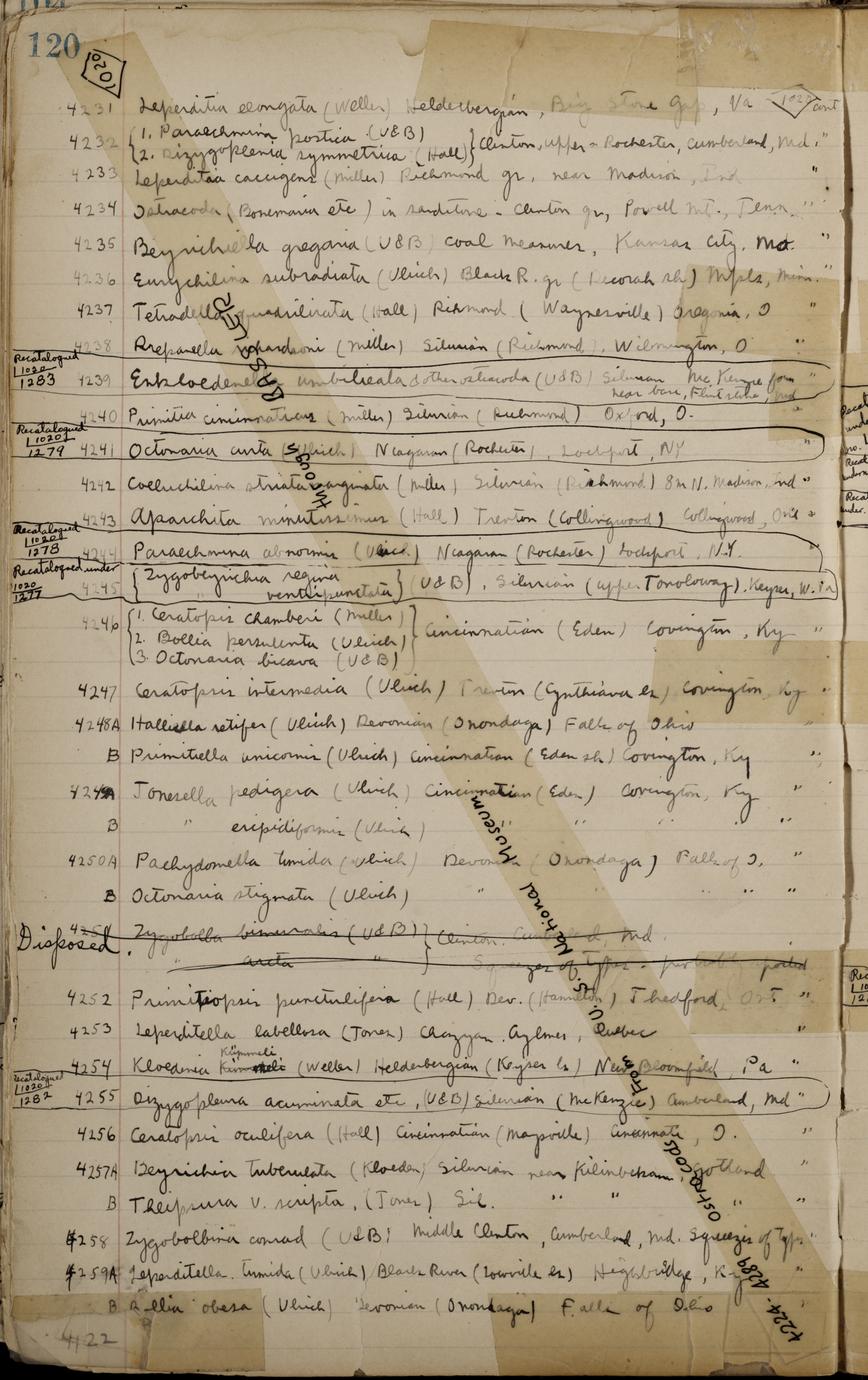 120
1020
4231 Leperditia elongata (Weller) Helderbergian, Big Stone Gap, Va 1020 cont
4232 { 1. Paraechmina postica (U&B) } Clinton, upper - Rochester, Cumberland, Md. "
2. Dizygopleura symmetrica (Hall)
4233 Leperditia caecigena (Miller) Richmond gr, near Madison, Ind "
4234 Ostracoda (Bonemaria etc) in sandstone - Clinton gr, Powell Mt., Tenn. "
4235 Beyrichiella gregaria (U&B) Coal Measures, Kansas City, Mo. "
4236 Eurychilina subradiata (Ulrich) Black R. gr (Decorah sh) Mpls, Minn. "
4237 Tetradella quadrilirata (Hall) Richmond (Waynesville) Oregonia, O "
4238 Aparchites richardsoni (Miller) Silurian (Richmond), Wilmington, O "
Recatalogued
1020
1283
4239 Kloedenella umbilicata & other ostracoda (U&B) Silurian McKenzie form
near base, Flintstone, Md
4240 Primitia cincinnatiensis (Miller) Silurian (Richmond) Oxford, O. "
Recatalogued
1020
1279
4241 Octonaria curta (Ulrich) Niagaran (Rochester), Lockport, NY
4242 Coeluchilina striatomarginata (Miller) Silurian (Richmond) 8m N. Madison, Ind "
4243 Aparchites minutissimus (Hall) Trenton (Collingwood) Collingwood, Ont "
Recatalogued
1020
1278
4244 Paraechmina abnormis (Ulrich) Niagaran (Rochester) Lockport, N.Y.
Recatalogued under
1020
1277
4245 { Zygobeyrichia regina } (U&B), Silurian (upper Tonoloway), Keyser, W. Va
" ventripunctata
4246 { 1. Ceratopsis chambersi (Miller) } Cincinnatian (Eden) Covington, Ky "
2. Bollia persulcata (Ulrich)
3. Octonaria bicava (U&B)
4247 Ceratopsis intermedia (Ulrich) Trenton (Cynthiana ls) Covington, Ky "
4248A Halliella retifera (Ulrich) Devonian (Onondaga) Falls of Ohio "
B Primitiella unicornis (Ulrich) Cincinnatian (Eden sh) Covington, Ky "
4249A Jonesella pedigera (Ulrich) Cincinnatian (Eden) Covington, Ky "
B " crepidiformis (Ulrich) " " " " "
4250A Pachydomella tumida (Ulrich) Devonian (Onondaga) Falls of O. "
B Octonaria stigmata (Ulrich) " " " "
Disposed. 4251 Zygobolba bimuralis (U&B) } Clinton. Cumberland, Md.
" arcta " Squeezes of types - probably reported
4252 Primitiopsis punctulifera (Hall) Dev. (Hamilton) Thedford, Ont "
4253 Leperditella labellosa (Jones) Chazyan. Aylmer, Quebec
4254 Kloedenia Kümmeli (Weller) Helderbergian (Keyser ls) New Bloomfield, Pa "
Recatalogued
1020
1282
4255 Dizygopleura acuminata etc, (U&B) Silurian (McKenzie) Cumberland, Md "
4256 Ceratopsis oculifera (Hall) Cincinnatian (Maysville) Cincinnati, O. "
4257A Beyrichia tuberculata (Kloeden) Silurian near Gotland
B Thlipsura v. scripta, (Jones) Sil. " " " "
4258 Zygobolbina conradi (U&B) Middle Clinton, Cumberland, Md. Squeezes of Type
4259A Leperditella tumida (Ulrich) Black River (Lowville ls) Highbridge, Ky "
B Bollia obesa (Ulrich) Devonian (Onondaga) Falls of Ohio "
4224-4289 Ostracods from U.S. National Museum through BASSLER